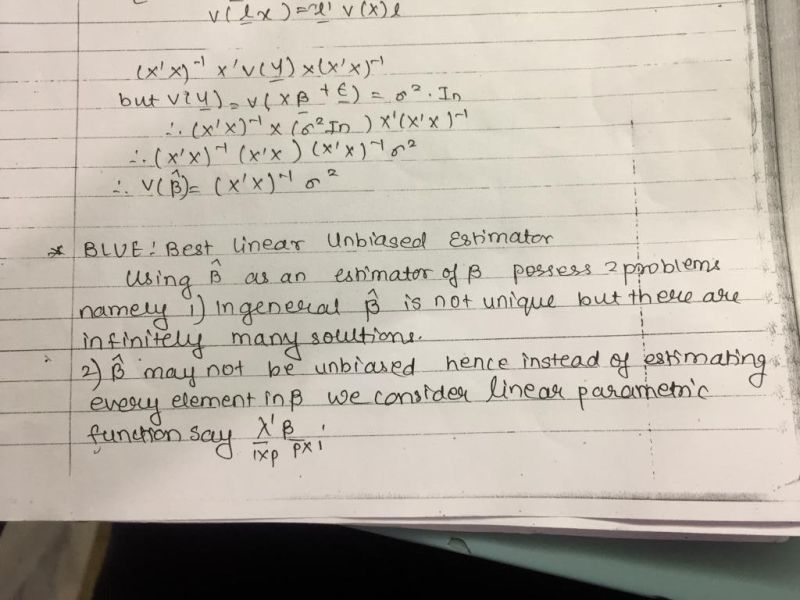 V(ℓx) = ℓ' V(x) ℓ
(x'x)⁻¹ x' V(y) x(x'x)⁻¹
but V(y) = V(xβ + ε) = σ². In
∴ (x'x)⁻¹ x (σ² In) x'(x'x)⁻¹
∴ (x'x)⁻¹ (x'x) (x'x)⁻¹ σ²
∴ V(β̂) = (x'x)⁻¹ σ²
* BLUE: Best linear Unbiased Estimator
Using β̂ as an estimator of β possess 2 problems
namely 1) In general β̂ is not unique but there are
infinitely many solutions.
2) β̂ may not be unbiased hence instead of estimating
every element in β we consider linear parametric
function say λ' β
1xp px1